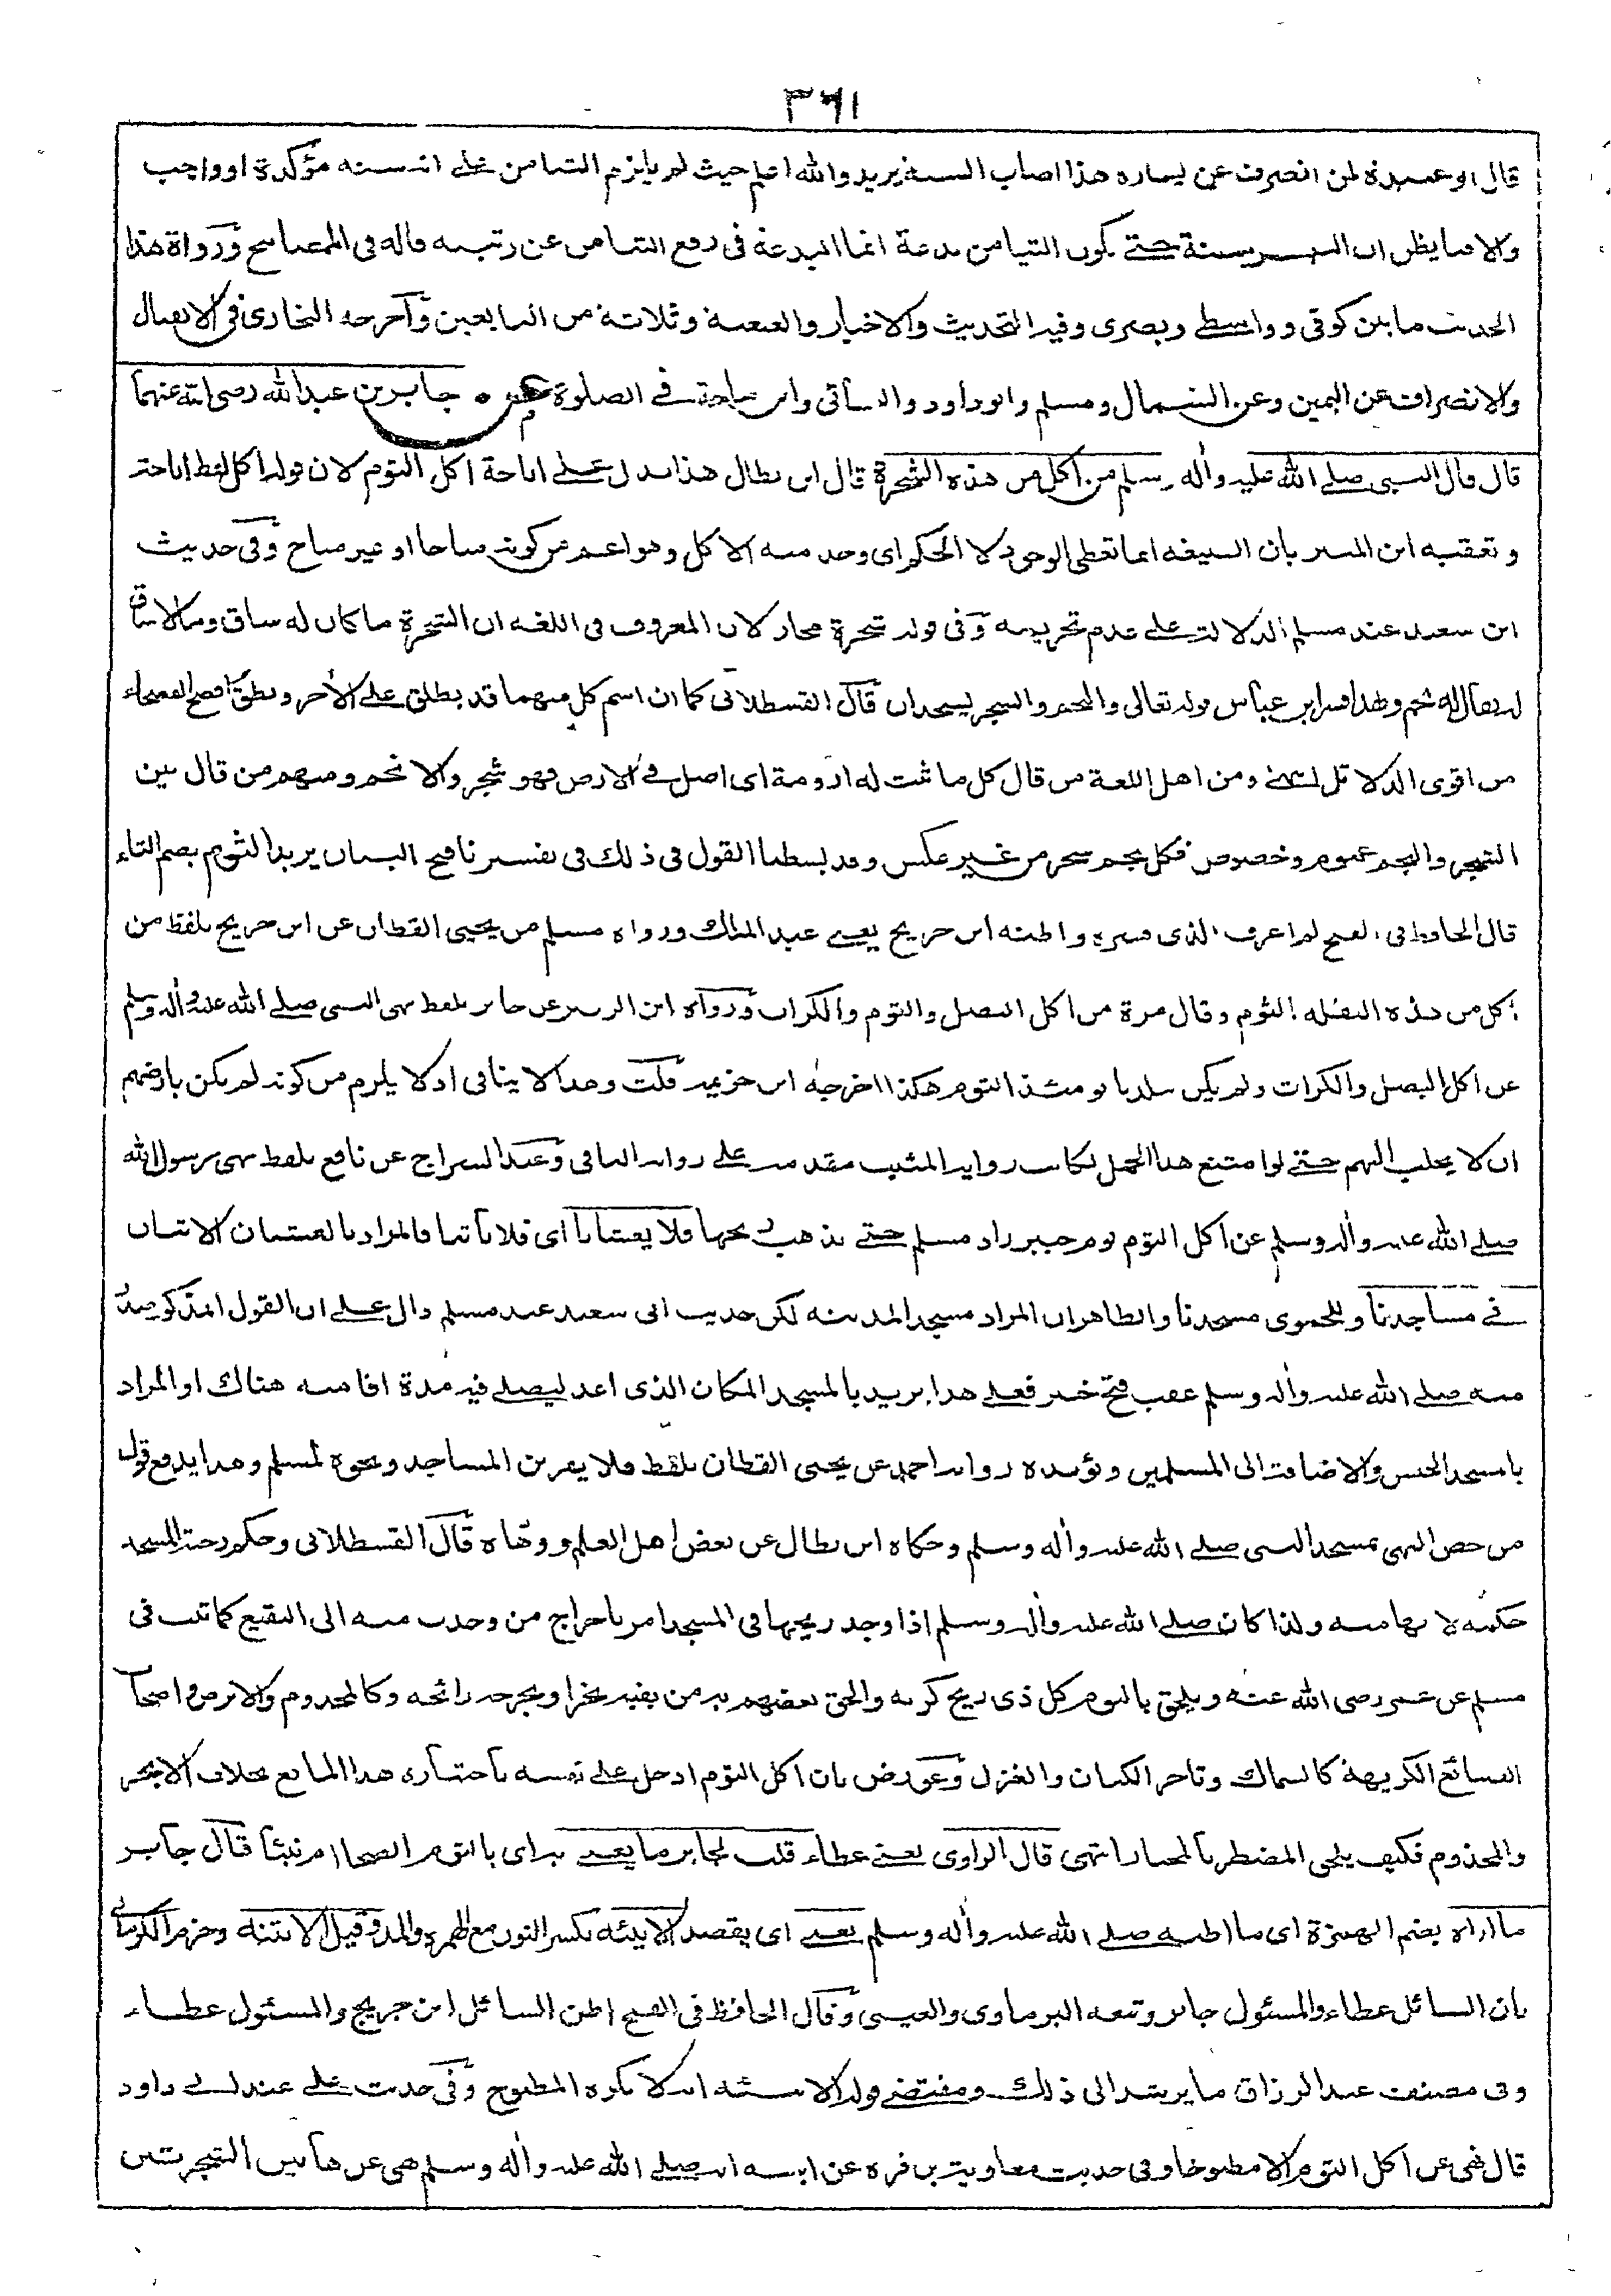 ٣٦١
قال ابو عبيدة لمن انصرف عن يساره هذا اصاب السنة يريد والله اعلم حيث لم يلزم التيامن على انه سنة مؤكدة او واجب
والا فما يظن ان التياسر سنة حتى يكون التيامن بدعة انما البدعة في رفع التيامن عن رتبته قاله في المصابيح ورواة هذا
الحديث ما بين كوفي وواسطي وبصري وفيه التحديث والاخبار والعنعنة وثلاثة من التابعين وأخرجه البخاري في الانفتال
والانصراف عن اليمين وعن الشمال ومسلم وابو داود والنسائي وابن ماجة في الصلوة عن جابر بن عبد الله رضي الله عنهما
قال قال النبي صلى الله عليه وآله وسلم من أكل من هذه الشجرة قال ابن بطال هذا يدل على اباحة اكل الثوم لان قوله من اكل لفظ اباحة
وتعقبه ابن المنير بان الصيغة انما تعطي الوجود لا الحكم اي وجد منه الاكل وهو اعم من كونه مباحا او غير مباح وفي حديث
ابي سعيد عند مسلم الدلالة على عدم تحريمه وفي قوله شجرة مجاز لان المعروف في اللغة ان الشجرة ما كان له ساق وما لا ساق
له يقال له نجم وبهذا فسر ابن عباس قوله تعالى والنجم والشجر يسجدان قال القسطلاني كما ان اسم كل منهما قد يطلق على الأخر ونطق افصح الفصحاء
من اقوى الدلائل انتهى ومن اهل اللغة من قال كل ما ثبت له ارومة اي اصل في الارض فهو شجر والا نجم ومنهم من قال بين
الشجر والنجم عموم وخصوص فكل نجم شجر من غير عكس وقد بسطنا القول في ذلك في تفسيرنا فتح البيان يريد الثوم بضم الثاء
قال الحافظ في الفتح لم اعرف الذي فسره واظنه ابن جريج يعني عبد الملك ورواه مسلم من يحيى القطان عن ابن جريج بلفظ من
أكل من هذه البقلة الثوم وقال مرة من اكل البصل والثوم والكراث ورواه ابن الزبير عن جابر بلفظ نهى النبي صلى الله عليه وآله وسلم
عن اكل البصل والكراث ولم يكن ببلدنا يومئذ الثوم هكذا اخرجه ابن خزيمة قلت وهذا لا ينافي اذ لا يلزم من كونه لم يكن بارضهم
ان لا يجلب اليهم حتى لو امتنع هذا الحمل لكانت رواية المثبت مقدمة على رواية النافي وعند السراج عن نافع بلفظ نهى رسول الله
صلى الله عليه وآله وسلم عن اكل الثوم يوم خيبر زاد مسلم حتى يذهب ريحها فلا يغشانا أي فلا يأتينا والمراد بالغشيان الاتيان
في مساجدنا وللحموي مسجدنا والظاهر ان المراد مسجد المدينة لكن حديث ابي سعيد عند مسلم دال على ان القول المذكور صدر
منه صلى الله عليه وآله وسلم عقب فتح خيبر فعلى هذا يريد بالمسجد المكان الذي اعد ليصلي فيه مدة اقامته هناك او المراد
بالمسجد الجنس والاضافة الى المسلمين ويؤيده رواية احمد عن يحيى القطان بلفظ فلا يقربن المساجد ونحوه لمسلم وهذا يدفع قول
من خص النهي بمسجد النبي صلى الله عليه وآله وسلم وحكاه ابن بطال عن بعض اهل العلم ووهاه قال القسطلاني وحكم رحبة المسجد
حكمه لانها منه ولذا كان صلى الله عليه وآله وسلم اذا وجد ريحها في المسجد امر باخراج من وجدت منه الى البقيع كما ثبت في
مسلم عن عمر رضي الله عنه ويلحق بالثوم كل ذي ريح كريه والحق بعضهم به من بفيه بخر او به جرح له رائحة وكالمجذوم والابرص واصحاب
الصنائع الكريهة كالسماك وتاجر الكتان والغزل وعورض بان اكل الثوم ادخل على نفسه باختياره هذا المانع بخلاف الابخر
والمجذوم فكيف يلحق المضطر بالمختار انتهى قال الراوي يعني عطاء قلت لجابر ما يعني به أي بالثوم انضيجا ام نيئا قال جابر
ما اراه بضم الهمزة اي ما اظنه صلى الله عليه وآله وسلم يعني اي يقصد الا نيئه بكسر النون مع الهمزة والمد وقيل الا نتنه وجزم الكرماني
بان السائل عطاء والمسئول جابر وتبعه البرماوي والعيني وقال الحافظ في الفتح اظن السائل ابن جريج والمسئول عطاء
وفي مصنف عبد الرزاق ما يرشد الى ذلك ومقتضى قوله الا نيئه انه لا يكره المطبوخ وفي حديث علي عند ابي داود
قال نهى عن اكل الثوم الا مطبوخا وفي حديث معاوية بن قرة عن ابيه انه صلى الله عليه وآله وسلم نهى عن هاتين الشجرتين